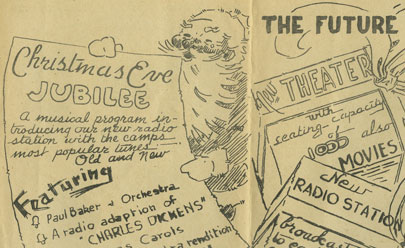 Christmas Eve
JUBILEE
A musical program in-
troducing our new radio
station with the camps
most popular tunes -
Old and New
Featuring
Paul Baker & Orchestra
A radio adaption of
"CHARLES DICKENS"
Carols
rendition
THE FUTURE
THEATER
with
seating capacity
of 1000 also
MOVIES
New
RADIO STATION
Broadcast